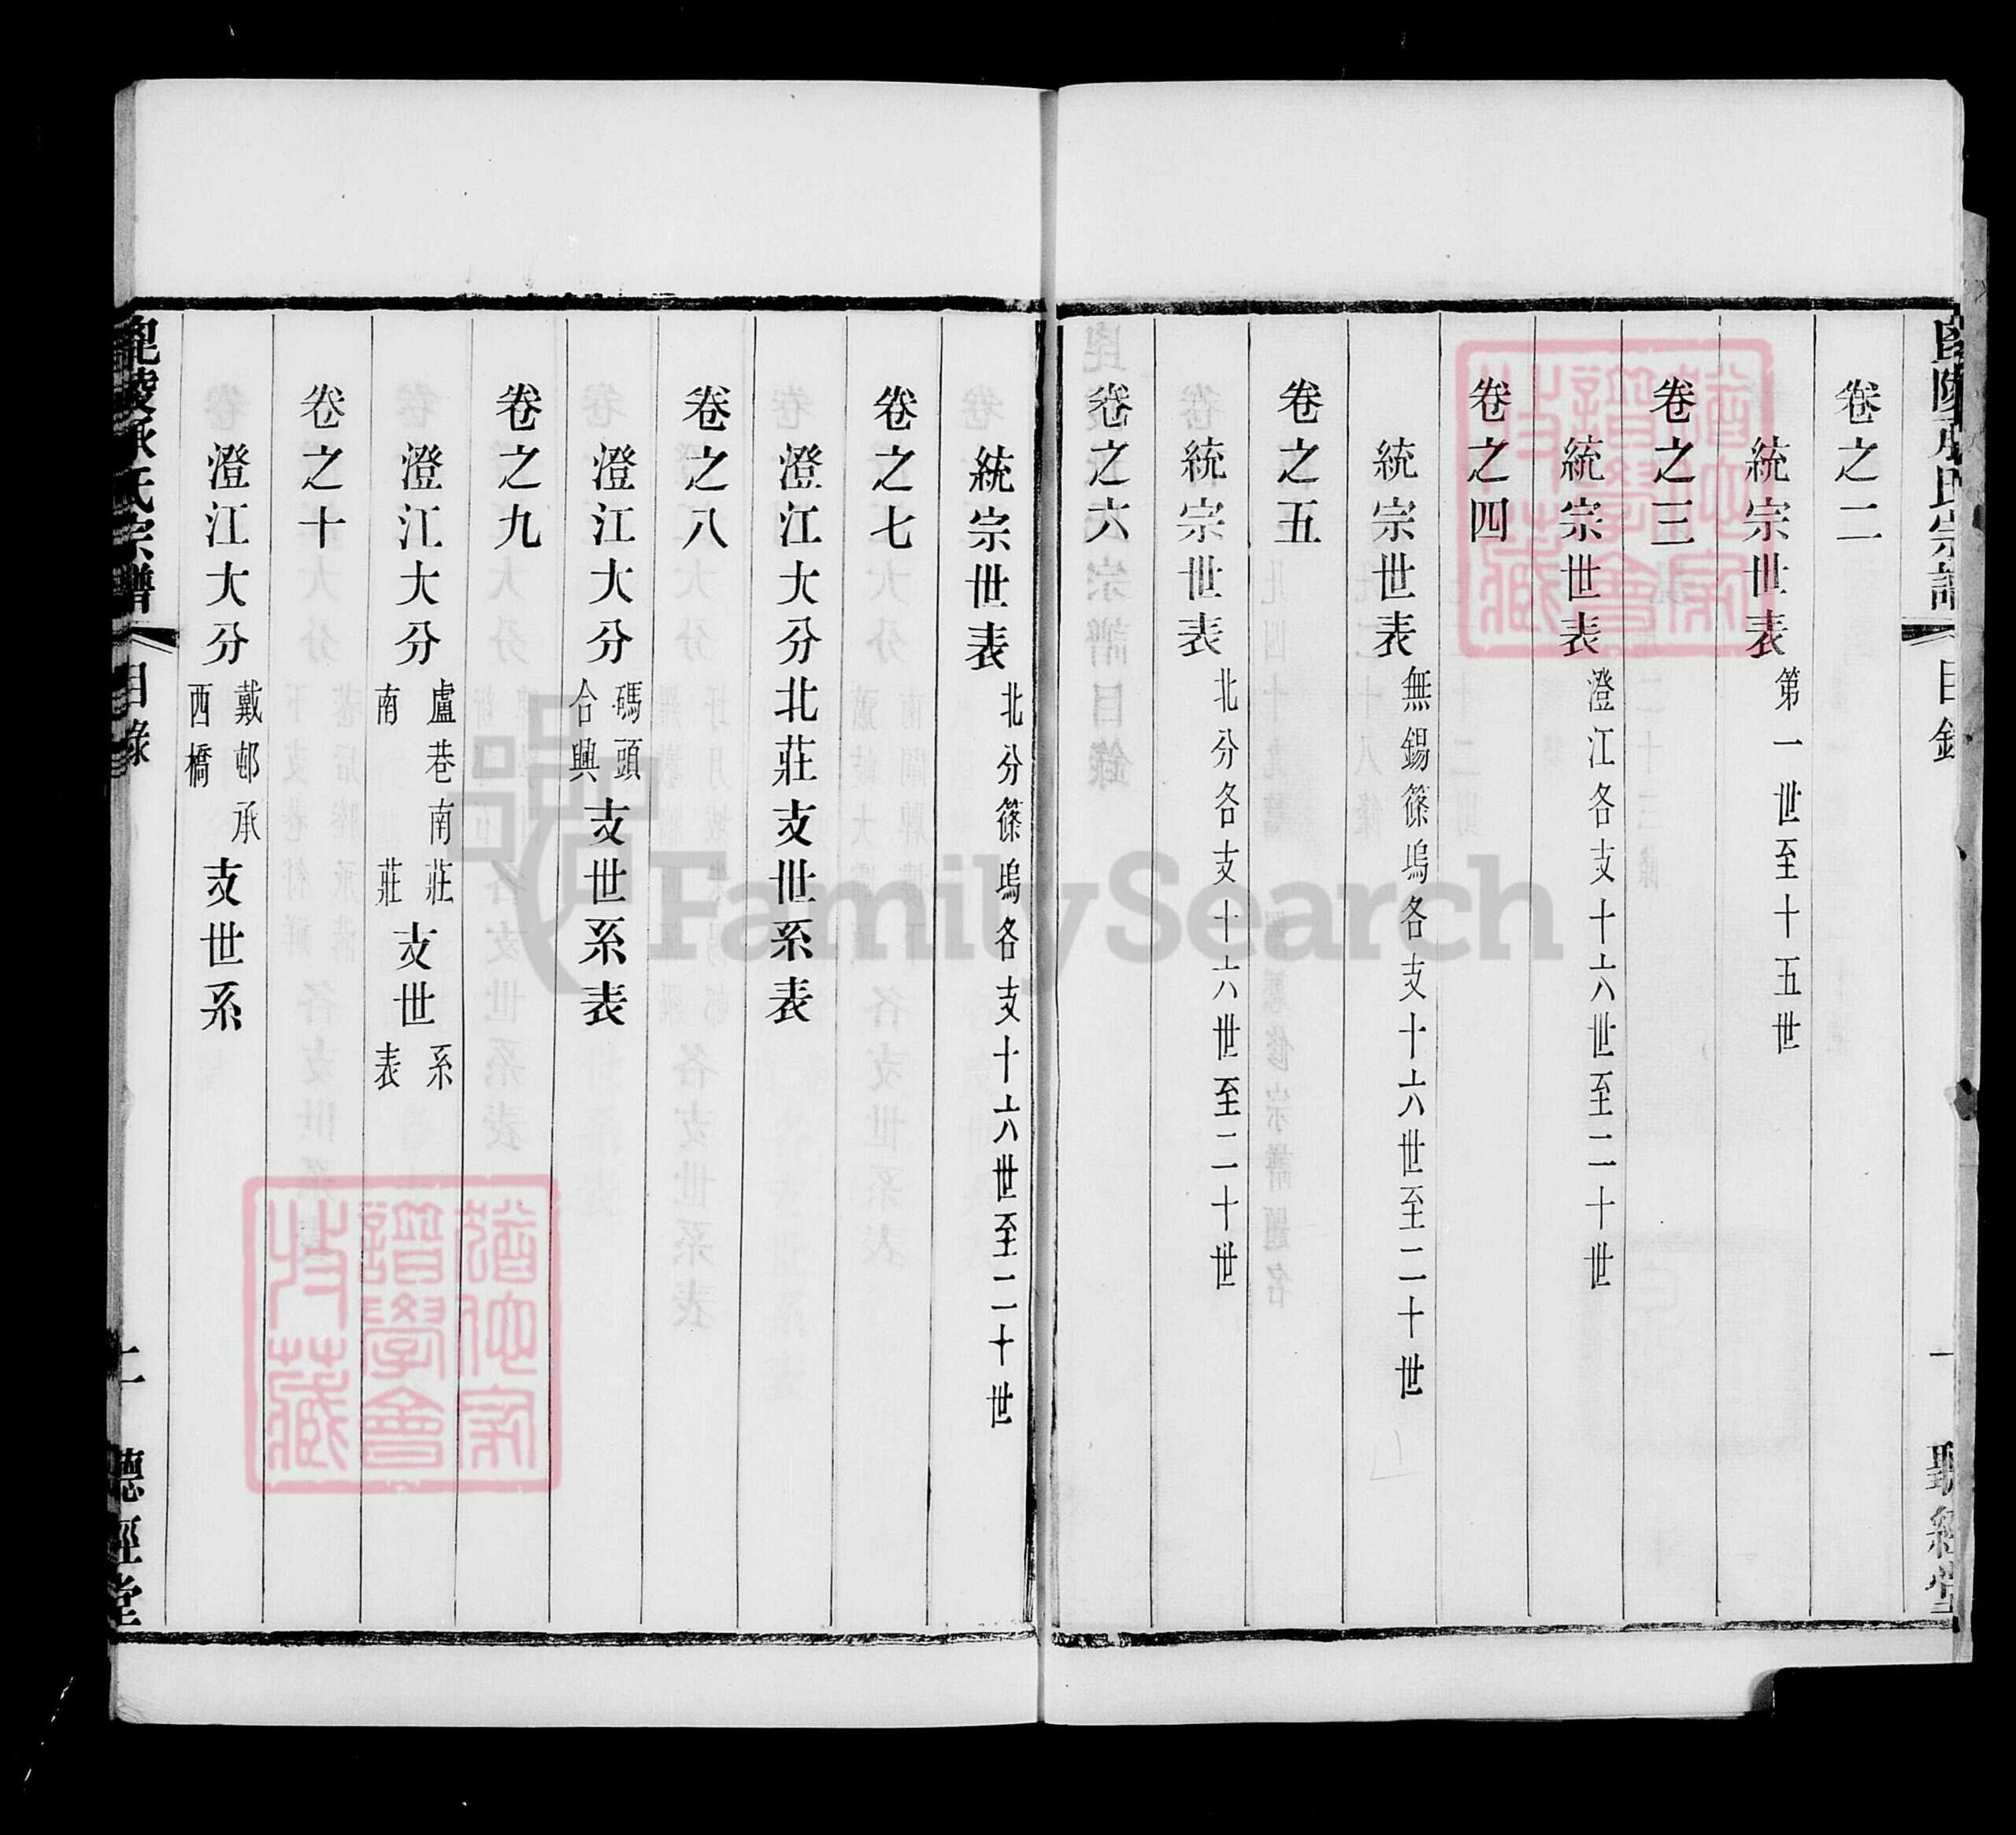 毘陵承氏宗譜 目錄 一 聽經堂
卷之二
統宗世表 第一世至十五世
卷之三
統宗世表 澄江各支十六世至二十世
卷之四
統宗世表 無錫篠塢各支十六世至二十世
卷之五
統宗世表 北分各支十六世至二十世
卷之六
統宗世表 北分篠塢各支十六世至二十世
卷之七
澄江大分北莊支世系表
卷之八
澄江大分 碼頭 合興 支世系表
卷之九
澄江大分 盧巷南莊 南莊 支世 系表
卷之十
澄江大分 戴邨承 西橋 支世系
毘陵承氏宗譜 目錄 二 聽經堂
譜學會
FamilySearch